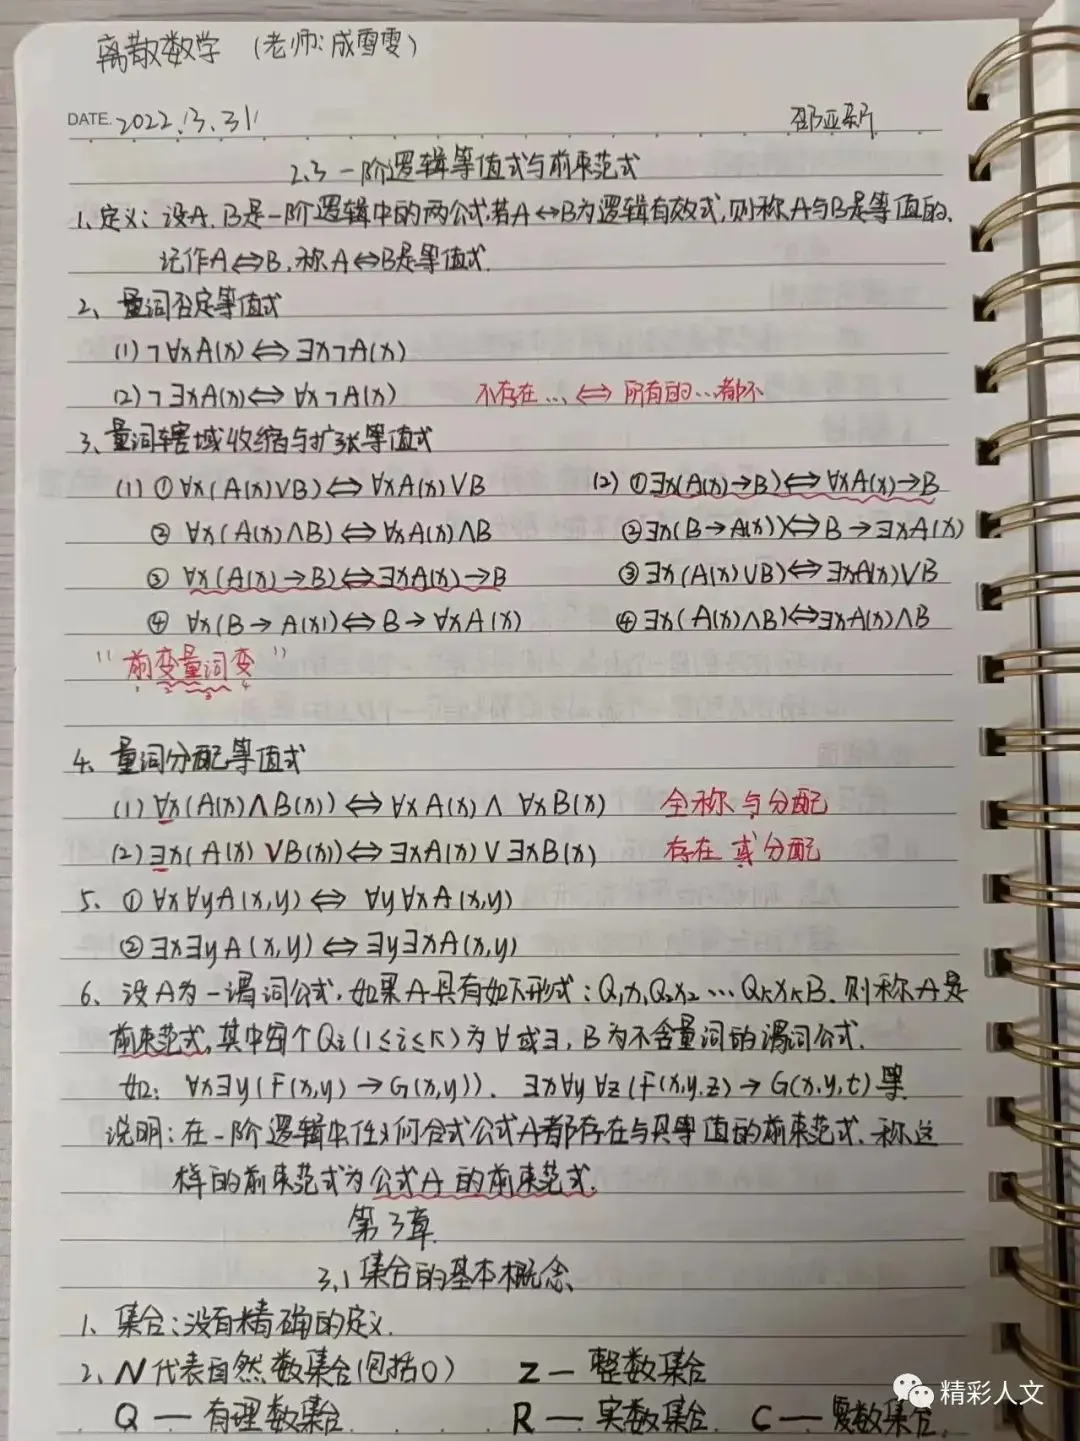 离散数学 (老师:成雪雯)
DATE. 2022.3.31 邵亚新
2.3 一阶逻辑等值式与前束范式
1、定义:设A、B是一阶逻辑中的两公式,若A↔B为逻辑有效式,则称A与B是等值的、
记作A⇔B,称A⇔B是等值式.
2、量词否定等值式
(1)¬∀xA(x)⇔∃x¬A(x)
(2)¬∃xA(x)⇔∀x¬A(x) 不存在…⇔所有的…都不
3、量词辖域收缩与扩张等值式
(1) ① ∀x(A(x)∨B)⇔∀xA(x)∨B (2) ①∃x(A(x)→B)⇔∀xA(x)→B
② ∀x(A(x)∧B)⇔∀xA(x)∧B ②∃x(B→A(x))⇔B→∃xA(x)
③ ∀x(A(x)→B)⇔∃xA(x)→B ③∃x(A(x)∨B)⇔∃xA(x)∨B
④ ∀x(B→A(x))⇔B→∀xA(x) ④∃x(A(x)∧B)⇔∃xA(x)∧B
"前变量词变"
1 2 3 4
4、量词分配等值式
(1)∀x(A(x)∧B(x))⇔∀xA(x)∧∀xB(x) 全称与分配
(2)∃x(A(x)∨B(x))⇔∃xA(x)∨∃xB(x) 存在或分配
5、①∀x∀yA(x,y)⇔∀y∀xA(x,y)
②∃x∃yA(x,y)⇔∃y∃xA(x,y)
6、设A为一谓词公式,如果A具有如下形式:Q₁x₁Q₂x₂…QₖxₖB.则称A是
前束范式,其中每个Qi(1≤i≤k)为∀或∃,B为不含量词的谓词公式.
如:∀x∃y(F(x,y)→G(x,y)).∃x∀y∀z(F(x,y,z)→G(x,y,t)等.
说明:在一阶逻辑中任何合式公式A都存在与其等值的前束范式.称这
样的前束范式为公式A的前束范式.
第3章.
3.1集合的基本概念、
1、集合:没有精确的定义.
2、N代表自然数集合(包括0) Z—整数集合
Q—有理数集合. R—实数集合. C—复数集合.
精彩人文